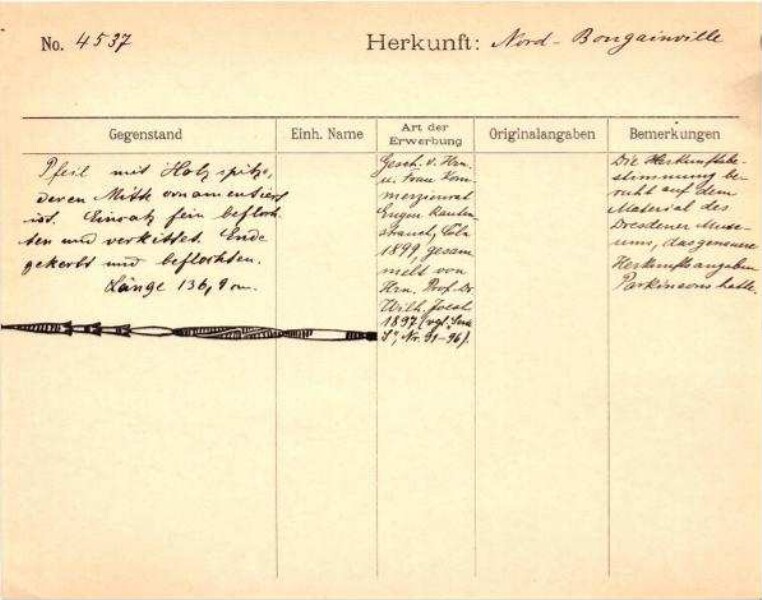 No. 4537
Herkunft: Nord - Bougainville
Gegenstand
Einh. Name
Art der Erwerbung
Originalangaben
Bemerkungen
Pfeil mit Holzspitze,
deren Mitte ornamentiert
ist. Einsatz fein befloch-
ten und verkittet. Ende
gekerbt und beflochten.
Länge 136,9 cm.
Gesch. v. Hrn.
u. Frau Kom-
merzienrat
Eugen Rauten-
strauch, Cöln
1899, gesam
melt von
Hrn. Prof. Dr.
Wilh. Joest
1897 (vgl.
Nr. 91-96).
Die Herkunftsbe-
stimmung be-
ruht auf dem
Material des
Dresdener Muse-
ums, das genauere
Herkunftsangaben
Parkinsons hatte.